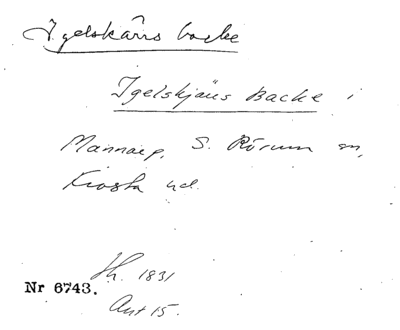 Igelskärrs backe
Igelskjärs Backe i
S. Rörum sn,
Frosta hd.
1831
Nr 6743.
Akt 15.